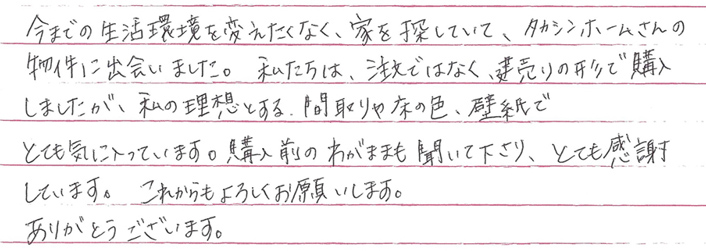 今までの生活環境を変えたくなく、家を探していて、タカシンホームさんの
物件に出会いました。私たちは、注文ではなく、建売りの形で購入
しましたが、私の理想とする、間取りや床の色、壁紙で
とても気に入っています。購入前のわがままも聞いて下さり、とても感謝
しています。これからもよろしくお願いします。
ありがとうございます。